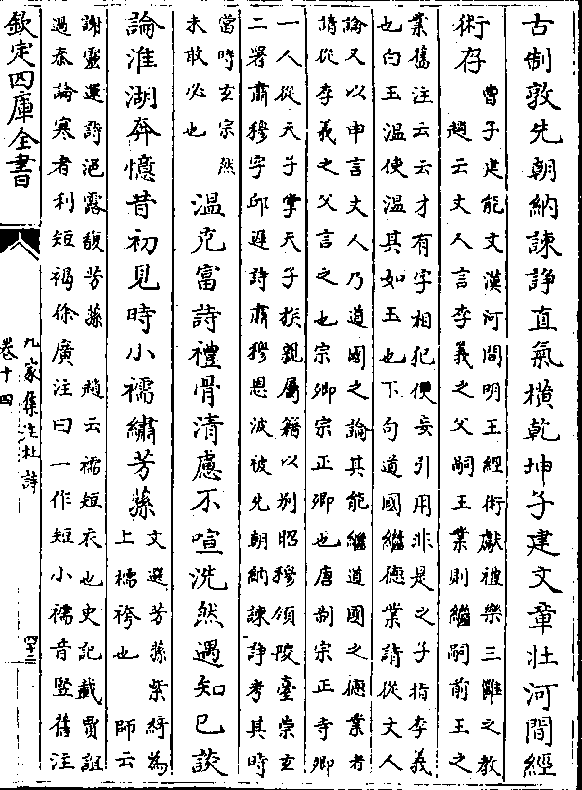 古制敦先朝納諫諍直氣橫乾坤子建文章壯河間經
術存
曹子建能文漢河間明王經術獻被樂三雝之教
趙云丈人言李義之父嗣王業則繼嗣前王之
業舊注云云才有字相犯便妄引用非是之子指李義
也白王温使温其如王也下句道國繼德業請從丈人
論又以申言丈人乃道國之論其能繼道國之德業者
請從李義之父言之也宗卿宗正卿也唐制宗正寺卿
一人從天子掌天子族親屬籍以别昭穆領陵臺崇玄
二署肅穆字邱遲詩肅穆恩波被先朝納諫諍考其時
當時玄宗然
未敢必也
温克富詩禮骨清慮不喧洗然遇知已談
論淮湖奔憶昔初見時小襦繡芳蓀
文選芳蓀紫綺為
上襦袴也 師云
謝靈運詩浥露馥芳蓀 趙云襦短衣也史記載賈誼
過秦論寒者利短褐徐廣注曰一作短小襦音竪舊注
欽定四庫全書
九家集注杜詩
卷十四
四十三